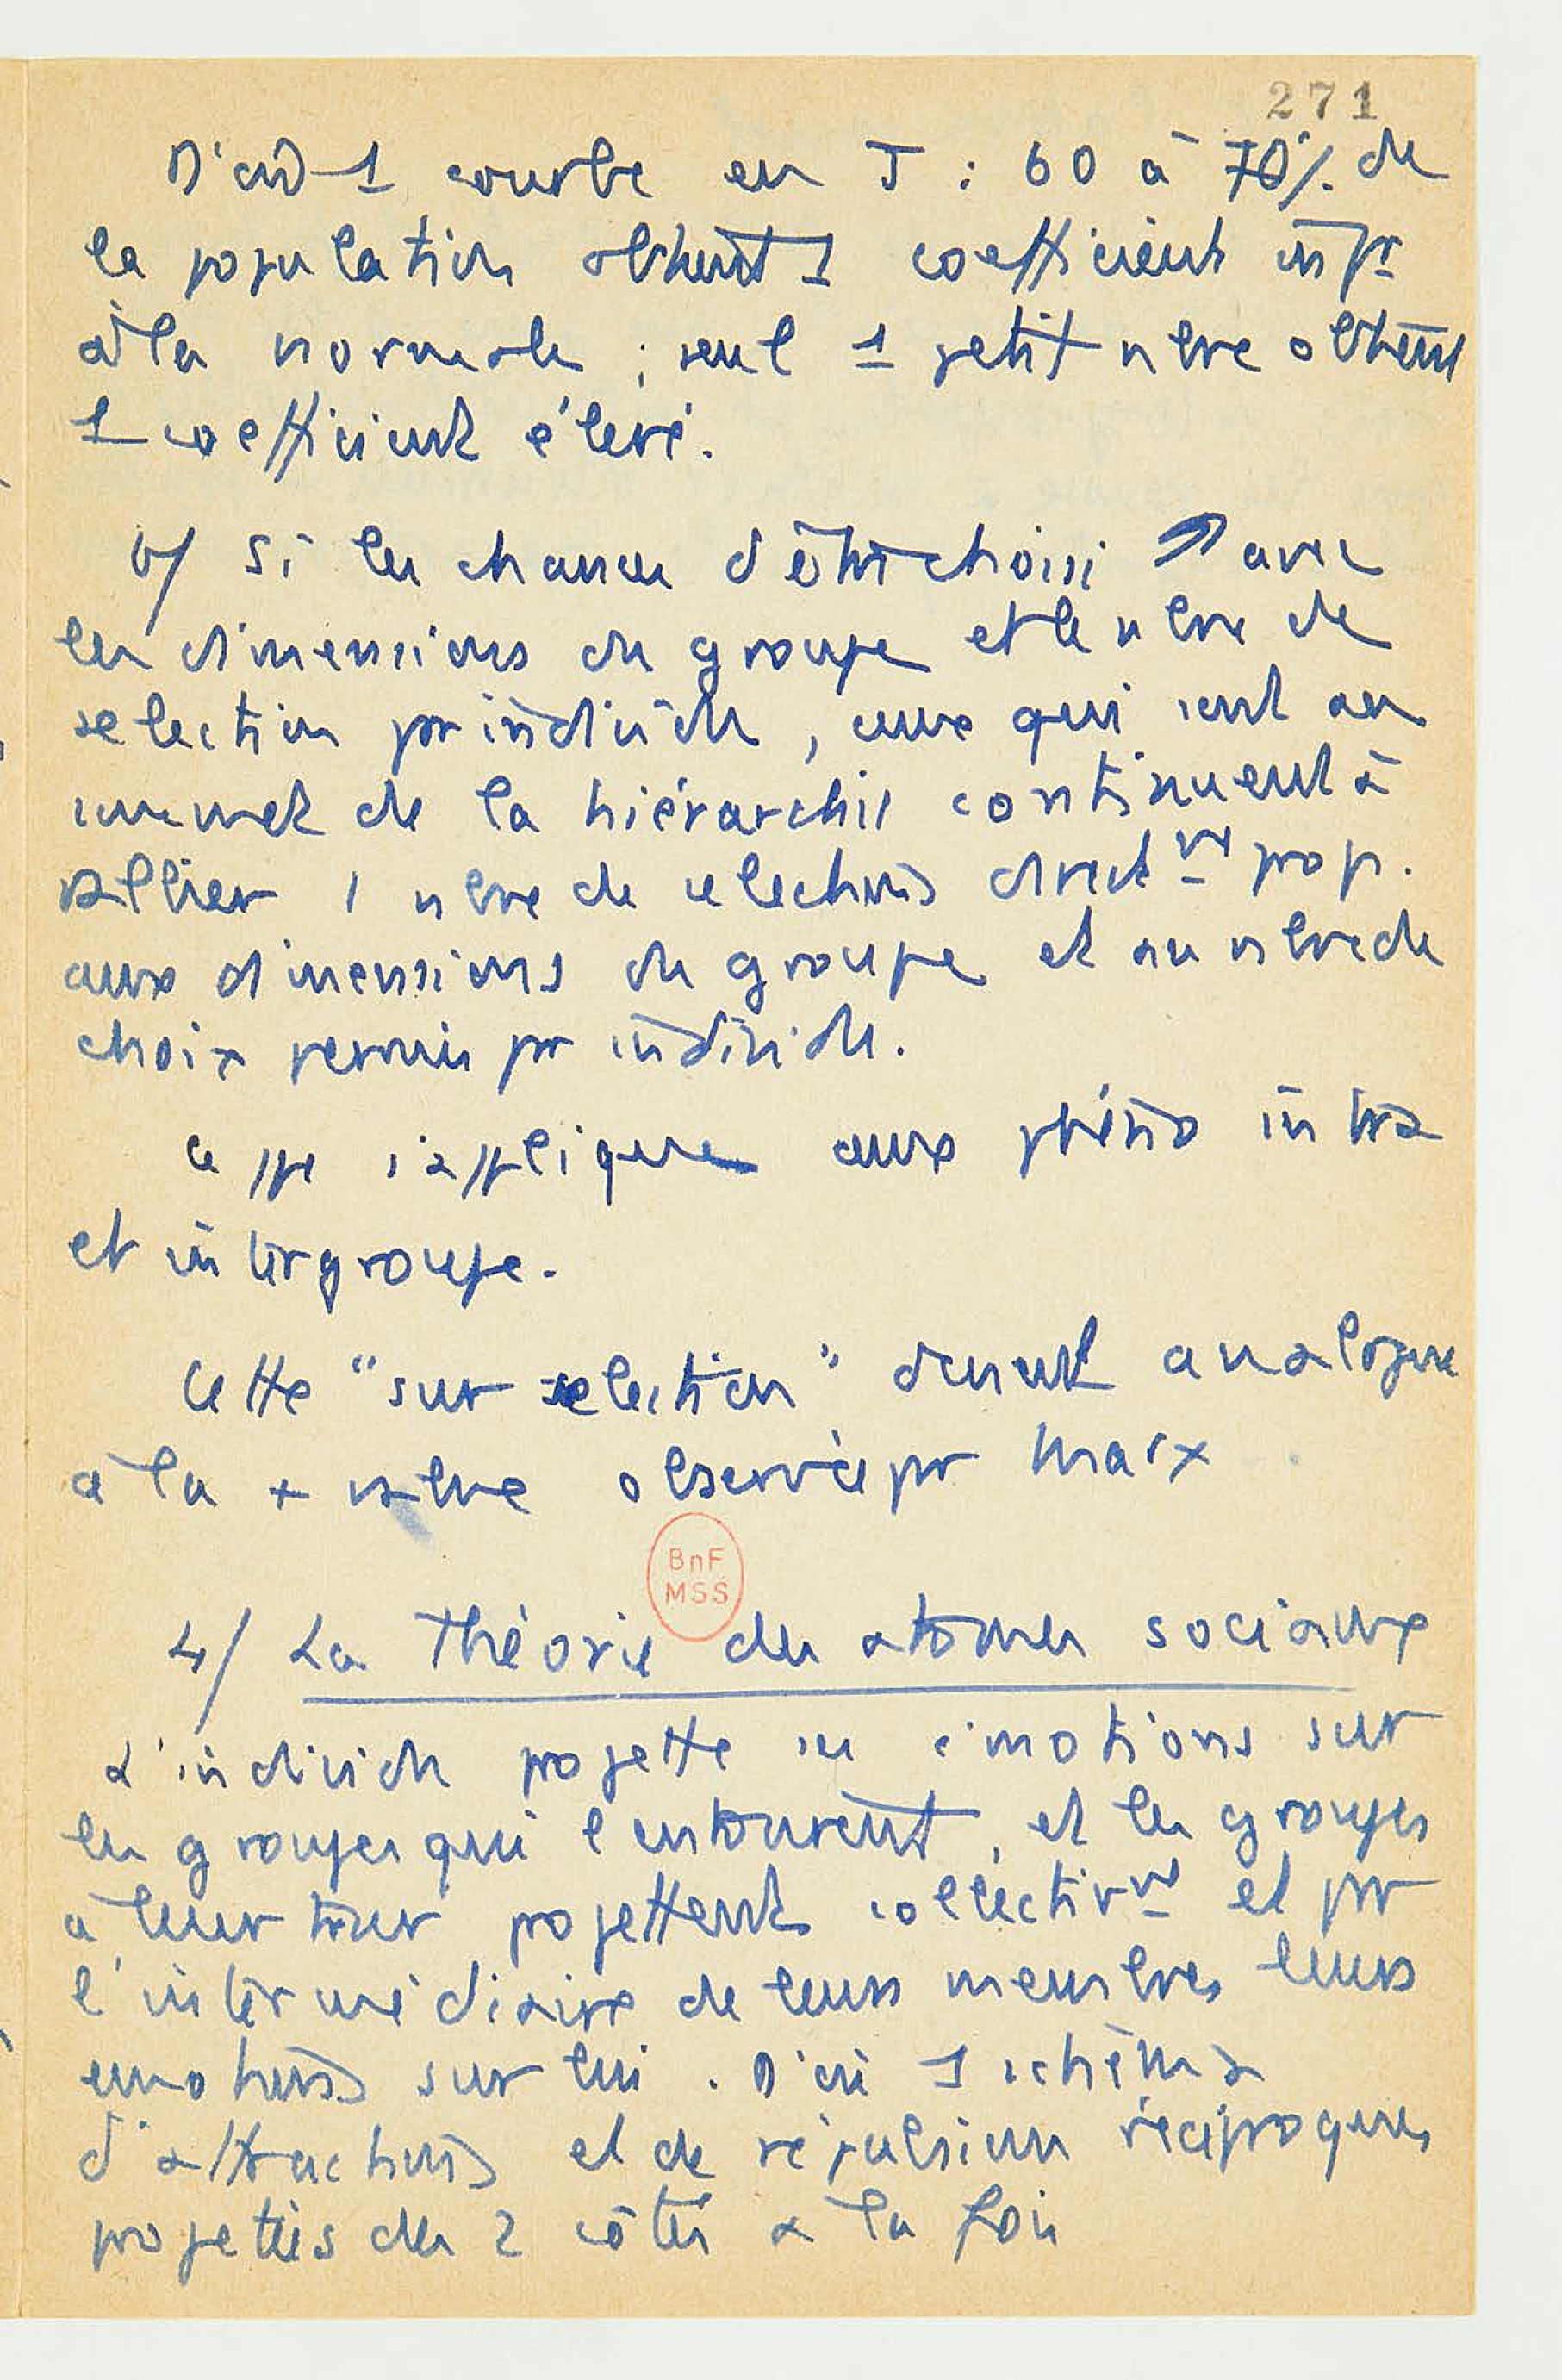 271
D'où 1 courbe en J : 60 à 70% de
la population obtient 1 coefficient infr
à la normale ; seul 1 petit nbre obtient
1 coefficient élevé.
b/ Si les chances d'être choisi ↗ avec
les dimensions du groupe et le nbre de
selection pr individu, ceux qui sont au
sommet de la hiérarchie continuent à
rallier 1 nbre de selections directmt prop.
aux dimensions du groupe et au nbre de
choix permis pr individu.
Ce ppe s'applique aux phéno intra
et intergroupe.
Cette "sur selection" devient analogue
à la + value observée pr Marx
BnF
MSS
4/ La Théorie des atomes sociaux
L'individu projette ses émotions sur
les groupes qui l'entourent, et les groupes
à leur tour projettent collectivmt et pr
l'intermédiaire de leurs membres leurs
emotions sur lui. D'où 1 schéma
d'attractions et de répulsions réciproques
projetées des 2 côtés à la fois